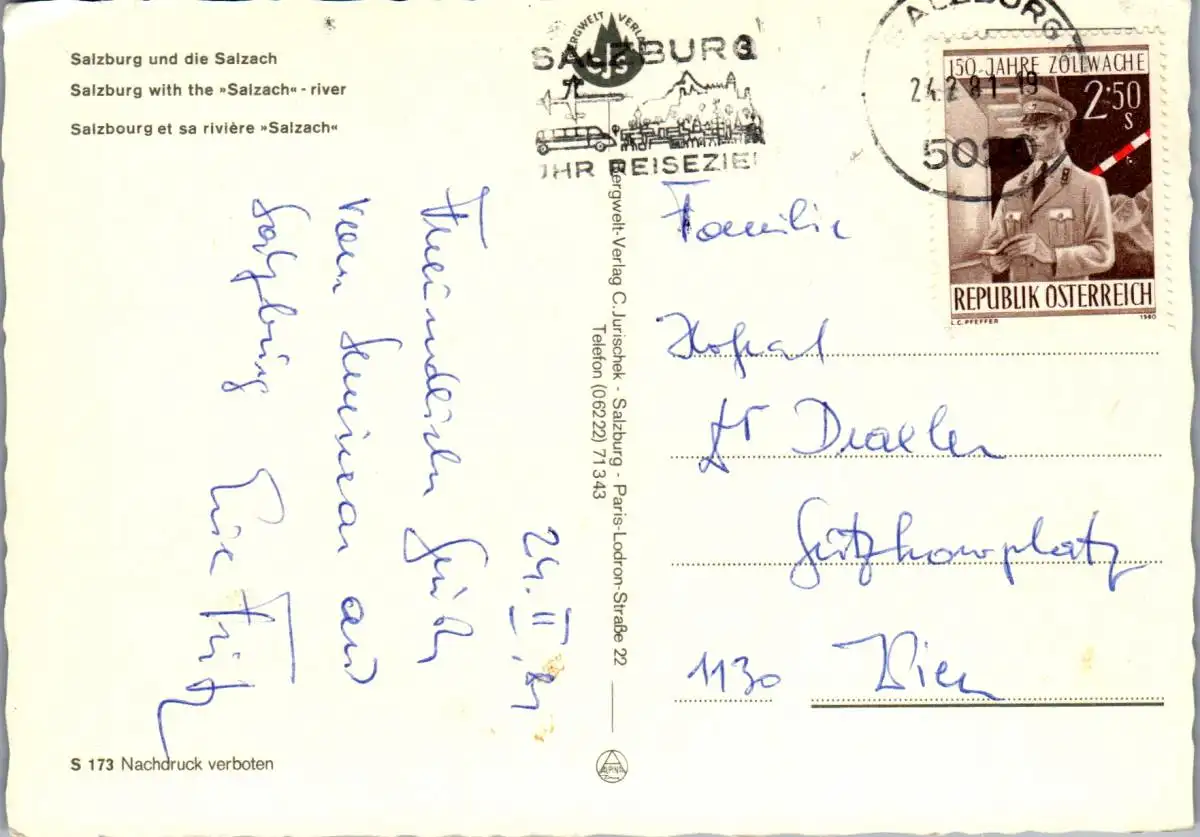 Salzburg und die Salzach
Salzburg with the »Salzach« - river
Salzbourg et sa rivière »Salzach«
BERGWELT VERLAG
SALZBURG
IHR REISEZIEL
SALZBURG
24.2.81-19
5020
150 JAHRE ZOLLWACHE
2·50
S
REPUBLIK ÖSTERREICH
L.C. PFEFFER
1980
24. II. 81
Freundliche Grüße
vom Seminar aus
Salzburg
Bergwelt-Verlag C. Jurischek - Salzburg - Paris-Lodron-Straße 22
Telefon (06222) 71343
Familie
Hofrat
Dr
1130 Wien
S 173 Nachdruck verboten